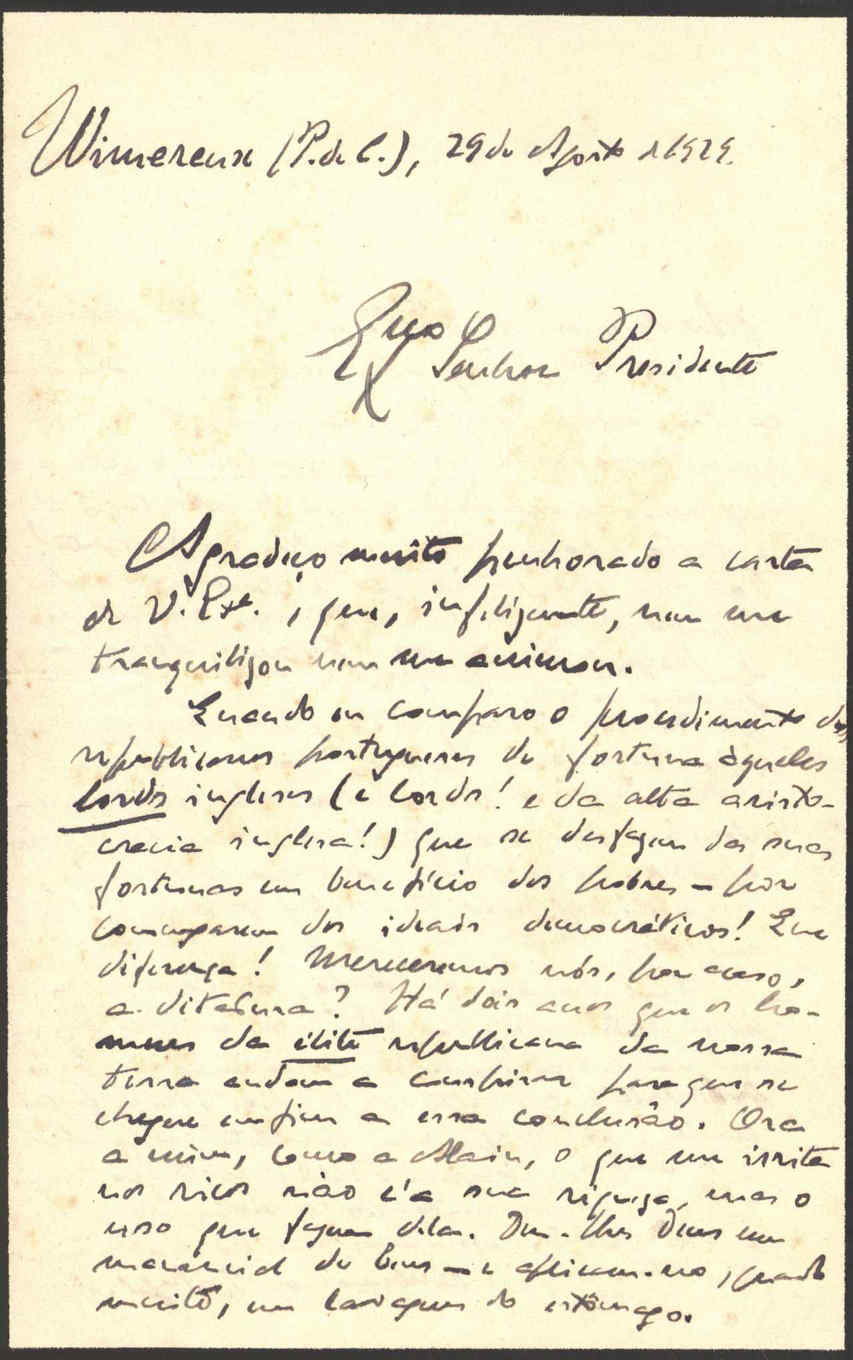 Wimereux (P. de C.), 29 de Agosto de 1929.
Exmo Senhor Presidente
Agradeço muito penhorado a carta
de V. Exa., que, infelizmente, nem me
tranquilizou nem me animou.
Quando eu comparo o procedimento dos
republicanos portugueses de fortuna àqueles
lords ingleses (e lords! e da alta aristo-
cracia inglesa!) que se desfazem das suas
fortunas em benefício dos pobres — por
comungarem dos ideais democráticos! Que
diferença! Mereceremos nós, por acaso,
a ditadura? Há dois anos que os ho-
mens da élite republicana da nossa
terra andam a conspirar para que se
chegue enfim a essa conclusão. Ora
a mim, como a Alain, o que me irrita
nos ricos não é a sua riqueza, mas o
uso que fazem dela. Deu-lhes Deus um
manancial de bens — e aplicam-no, quando
muito, em lavagens do estômago.